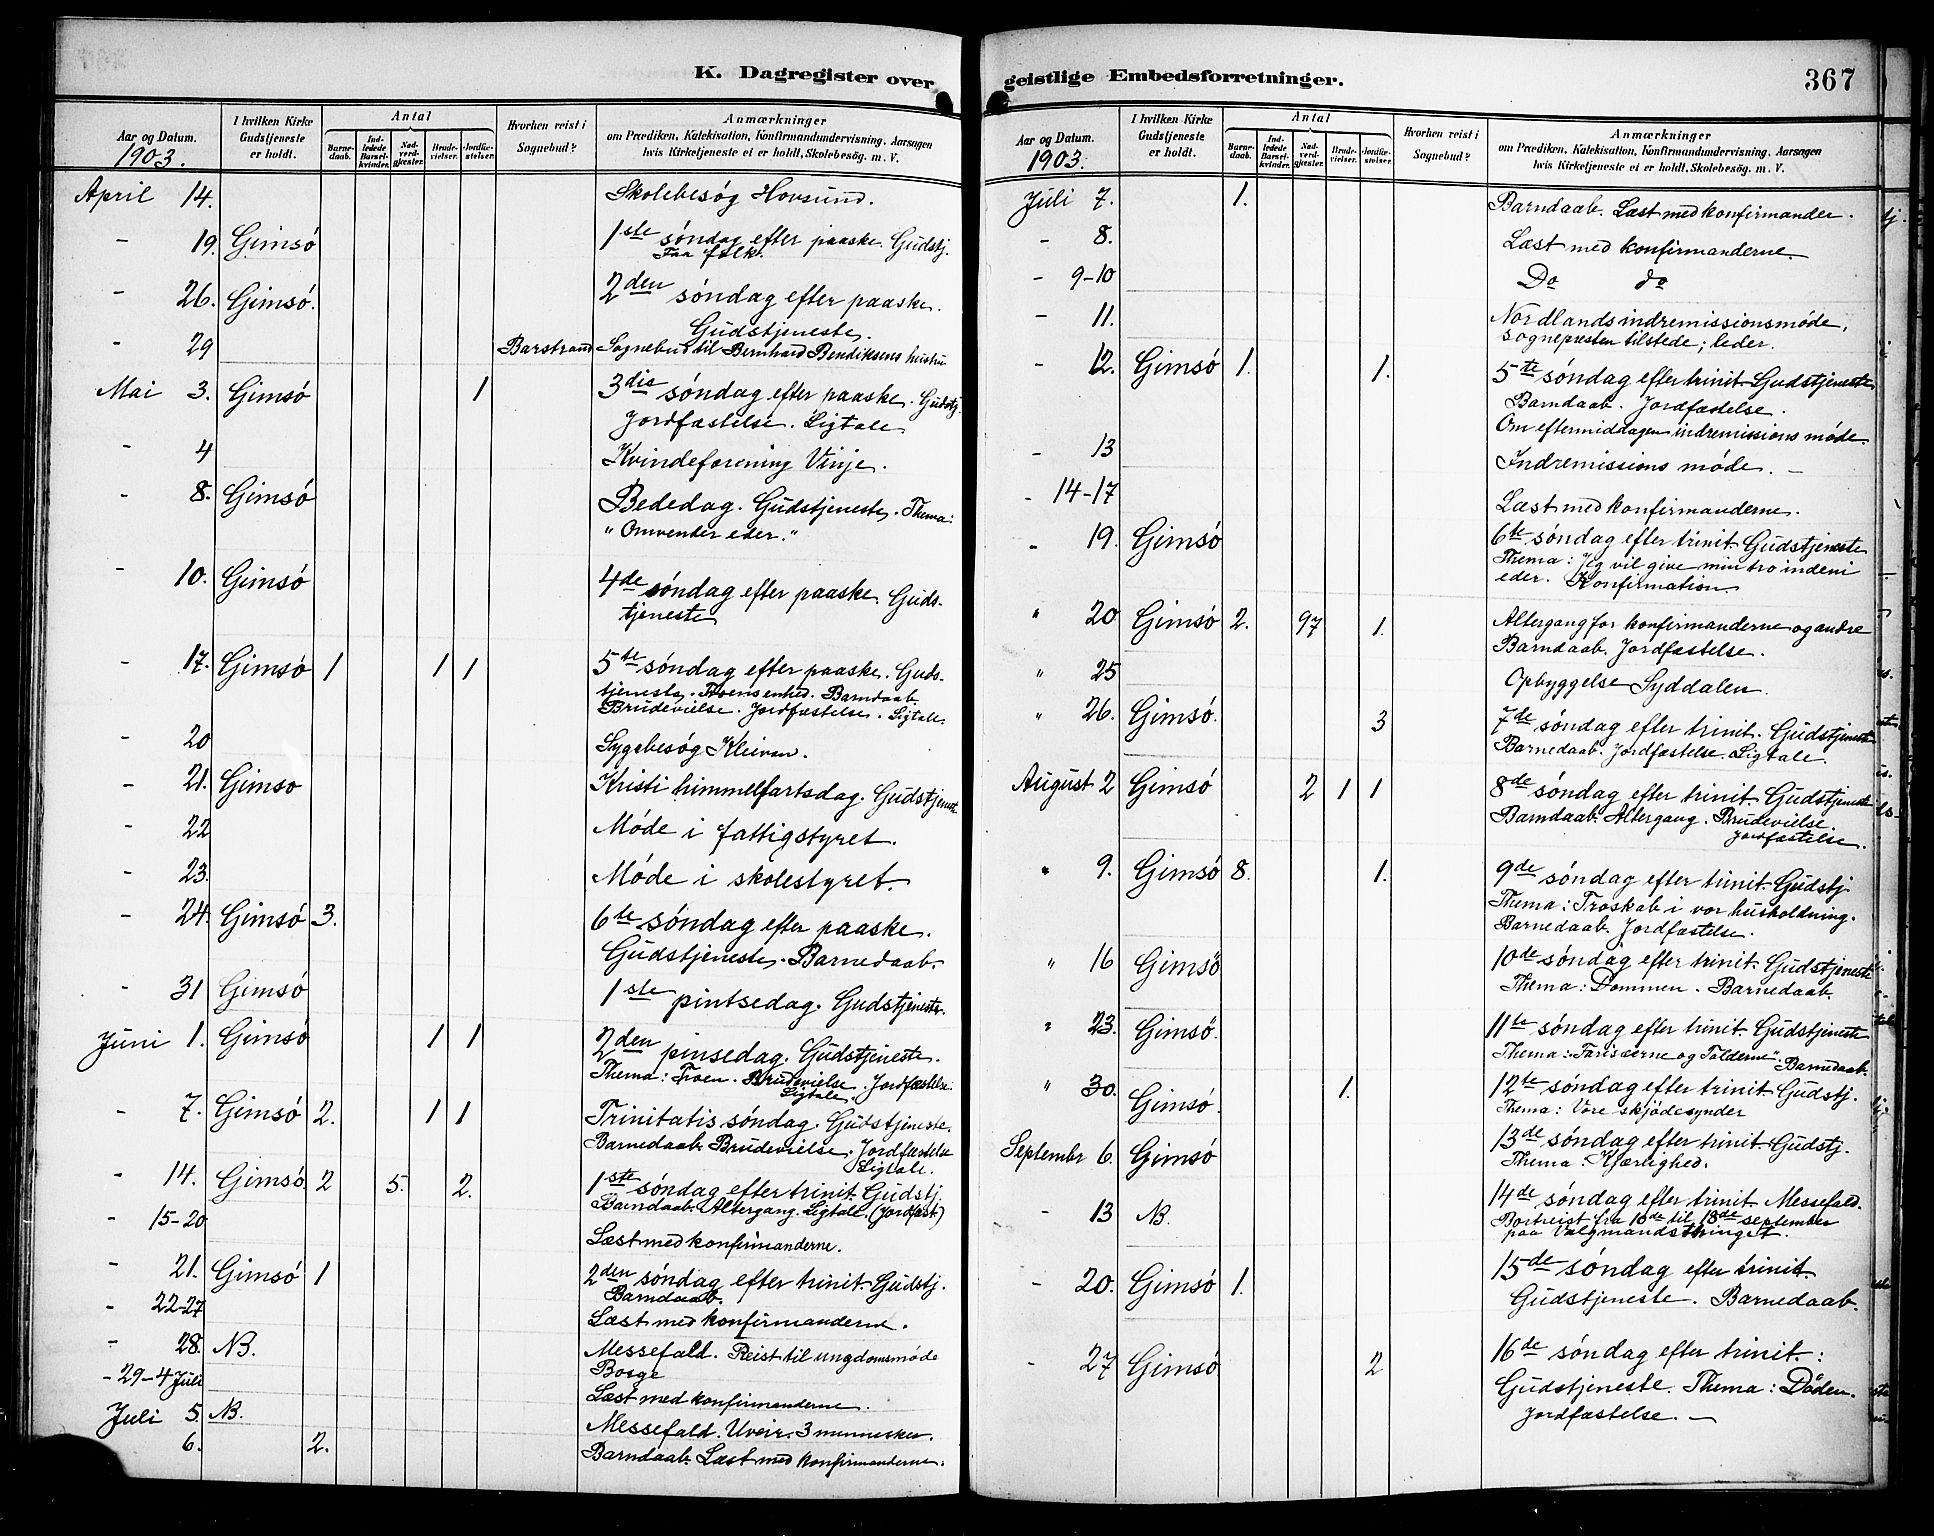 K. Dagregister over
Aar og Datum.
1903.
I hvilken Kirke Gudstjeneste er holdt.
Antal
Barnedaab.
Indledede Barselkvinder.
Nadverdgjester.
Brudevielser.
Jordfæstelser.
Hvorhen reist i Sognebud?
Anmærkninger
om Prædiken, Katekisation, Konfirmandundervisning, Aarsagen
hvis Kirketjeneste ei er holdt, Skolebesög. m. V.
April 14. Skolebesög Hovsund.
- 19. Gimsö 1ste söndag efter paaske. Gudstj.
Faa folk.
- 26. Gimsö. 2den söndag efter paaske.
Gudstjeneste.
- 29 Barstrand Sognebud til Bernhard Bendiksens hustru
Mai 3. Gimsö 1 3die söndag efter paaske. Gudstj.
Jordfæstelse. Ligtale
- 4 Kvindeforening Vinje.
- 8. Gimsö Bededag. Gudstjeneste. Thema:
"Omvender eder."
- 10. Gimsö 4de söndag efter paaske. Guds-
tjeneste
- 17. Gimsö 1 1 1 5te söndag efter paaske. Guds-
tjeneste. Troens enhed. Barndaab.
Brudevielse. Jordfæstelse. Ligtale.
- 20 Sygebesög Kleivan.
- 21. Gimso Kristi himmelfartsdag. Gudstjeneste
- 22 Möde i fattigstyret.
- 23. Möde i skolestyret.
- 24. Gimsö 3. 6te söndag efter paaske.
Gudstjeneste. Barnedaab.
- 31 Gimsö 1ste pintsedag. Gudstjeneste.
Juni 1. Gimsö 1 1 2den pinsedag. Gudstjeneste.
Thema: Troen. Brudevielse. Jordfæstelse.
Ligtale.
- 7. Gimsö 2. 1 1 Trinitatis söndag. Gudstjeneste.
Barnedaab. Brudevielse. Jordfæstelse
Ligtale.
- 14. Gimsö 2 5. 2. 1ste söndag efter trinit. Gudstj.
Barndaab. Altergang. Ligtale. (Jordfæst.)
- 15-20 Læst med konfirmanderne.
- 21. Gimsö 1 2den söndag efter trinit. Gudstj.
Barndaab.
- 22-27 Læst med konfirmanderne.
- 28. NB. Messefald. Reist til ungdomsmöde
Borge
- 29-4 Juli Læst med konfirmanderne.
Juli 5. NB. Messefald. Uveir. 3 mennesker.
6. 2. Barndaab. Læst med konfirmanderne.
geistlige Embedsforretninger.
367
Aar og Datum.
1903.
I hvilken Kirke Gudstjeneste er holdt.
Antal
Barnedaab.
Indledede Barselkvinder.
Nadverdgjester.
Brudevielser.
Jordfæstelser.
Hvorhen reist i Sognebud?
Anmærkninger
om Prædiken, Katekisation, Konfirmandundervisning, Aarsagen
hvis Kirketjeneste ei er holdt, Skolebesög. m. V.
Juli 7. 1. Barndaab. Læst med konfirmander.
- 8. Læst med konfirmanderne.
- 9-10 Do do
- 11. Nordlands indremissionsmöde,
sognepresten tilstede; leder.
- 12. Gimsö 1. 1. 5te söndag efter trinit. Gudstjeneste
Barndaab. Jordfæstelse.
Om eftermiddagen indremissions möde.
- 13 Indremissions möde. -
- 14-17 Læst med konfirmanderne.
- 19. Gimsö 6te söndag efter trinit. Gudstjeneste
Thema: Jeg vil give min tro indeni
eder. Konfirmation.
" 20 Gimsö 2. 97 1. Altergang for konfirmanderne og andre
Barndaab. Jordfæstelse.
" 25 Opbyggelse Syddalen.
" 26. Gimsö. 3 7de söndag efter trinit. Gudstjeneste
Barnedaab. Jordfæstelse. Ligtale.
August 2 Gimsö 2 1 1 8de söndag efter trinit. Gudstjeneste
Barndaab. Altergang. Brudevielse.
Jordfæstelse.
" 9. Gimsö 8. 1. 9de söndag efter trinit. Gudstj
Thema: Troskab i vor husholdning.
Barnedaab. Jordfæstelse.
" 16 Gimsö 10de söndag efter trinit. Gudstjeneste
Thema: Dommen. Barnedaab.
" 23. Gimsö. 11te söndag efter trinit. Gudstjeneste
Thema: "Fariseerne og Tolderne". Barnedaab.
" 30. Gimsö. 1. 12te söndag efter trinit. Gudstj.
Thema: Vore skjödesynder
September 6. Gimsö 13de söndag efter trinit. Gudstj.
Thema: Kjærlighed.
- 13 NB. 14de söndag efter trinit. Messefald.
Bortreist fra 10de til 18de september
paa Valgmandsthinget.
- 20. Gimsö 1. 15de söndag efter trinit.
Gudstjeneste. Barnedaab.
- 27 Gimsö 2 16de söndag efter trinit.:
Gudstjeneste. Thema: Döden.
Jordfæstelse. -